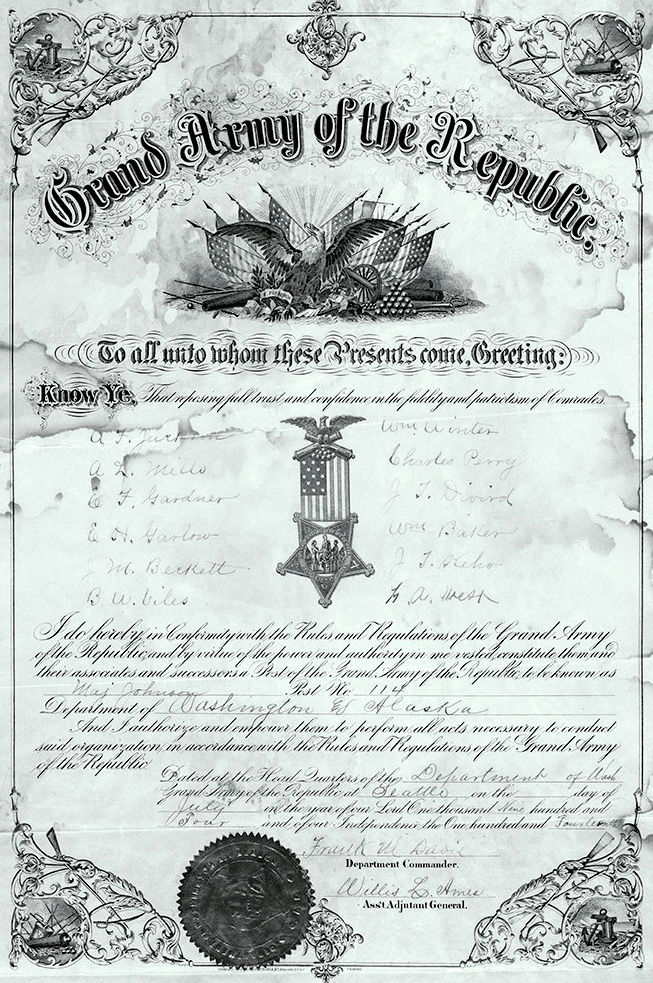 Grand Army of the Republic.
To all unto whom these Presents come, Greeting:
Know Ye, That reposing full trust and confidence in the fidelity and patriotism of Comrades
Wm Winter
A. L. Mills
Charles Perry
E F. Gardner
E H. Garlow
Wm Baker
J M. Beckett
J T. Keho
B. W. Viles
A. West
I do hereby, in Conformity with the Rules and Regulations of the Grand Army
of the Republic, and by virtue of the power and authority in me vested, constitute them and
their associates and successors a Post of the Grand Army of the Republic, to be known as
Maj Johnson Post No 114
Department of Washington & Alaska
And I authorize and empower them to perform all acts necessary to conduct
said organization in accordance with the Rules and Regulations of the Grand Army
of the Republic
Dated at the Head Quarters of the Department of Wash
Grand Army of the Republic, at Seattle on the day of
July in the year of our Lord One thousand Nine hundred and
Four and of our Independence the One hundred and
Frank M Davis
Department Commander.
Willis L. Ames
Ass't Adjutant General.